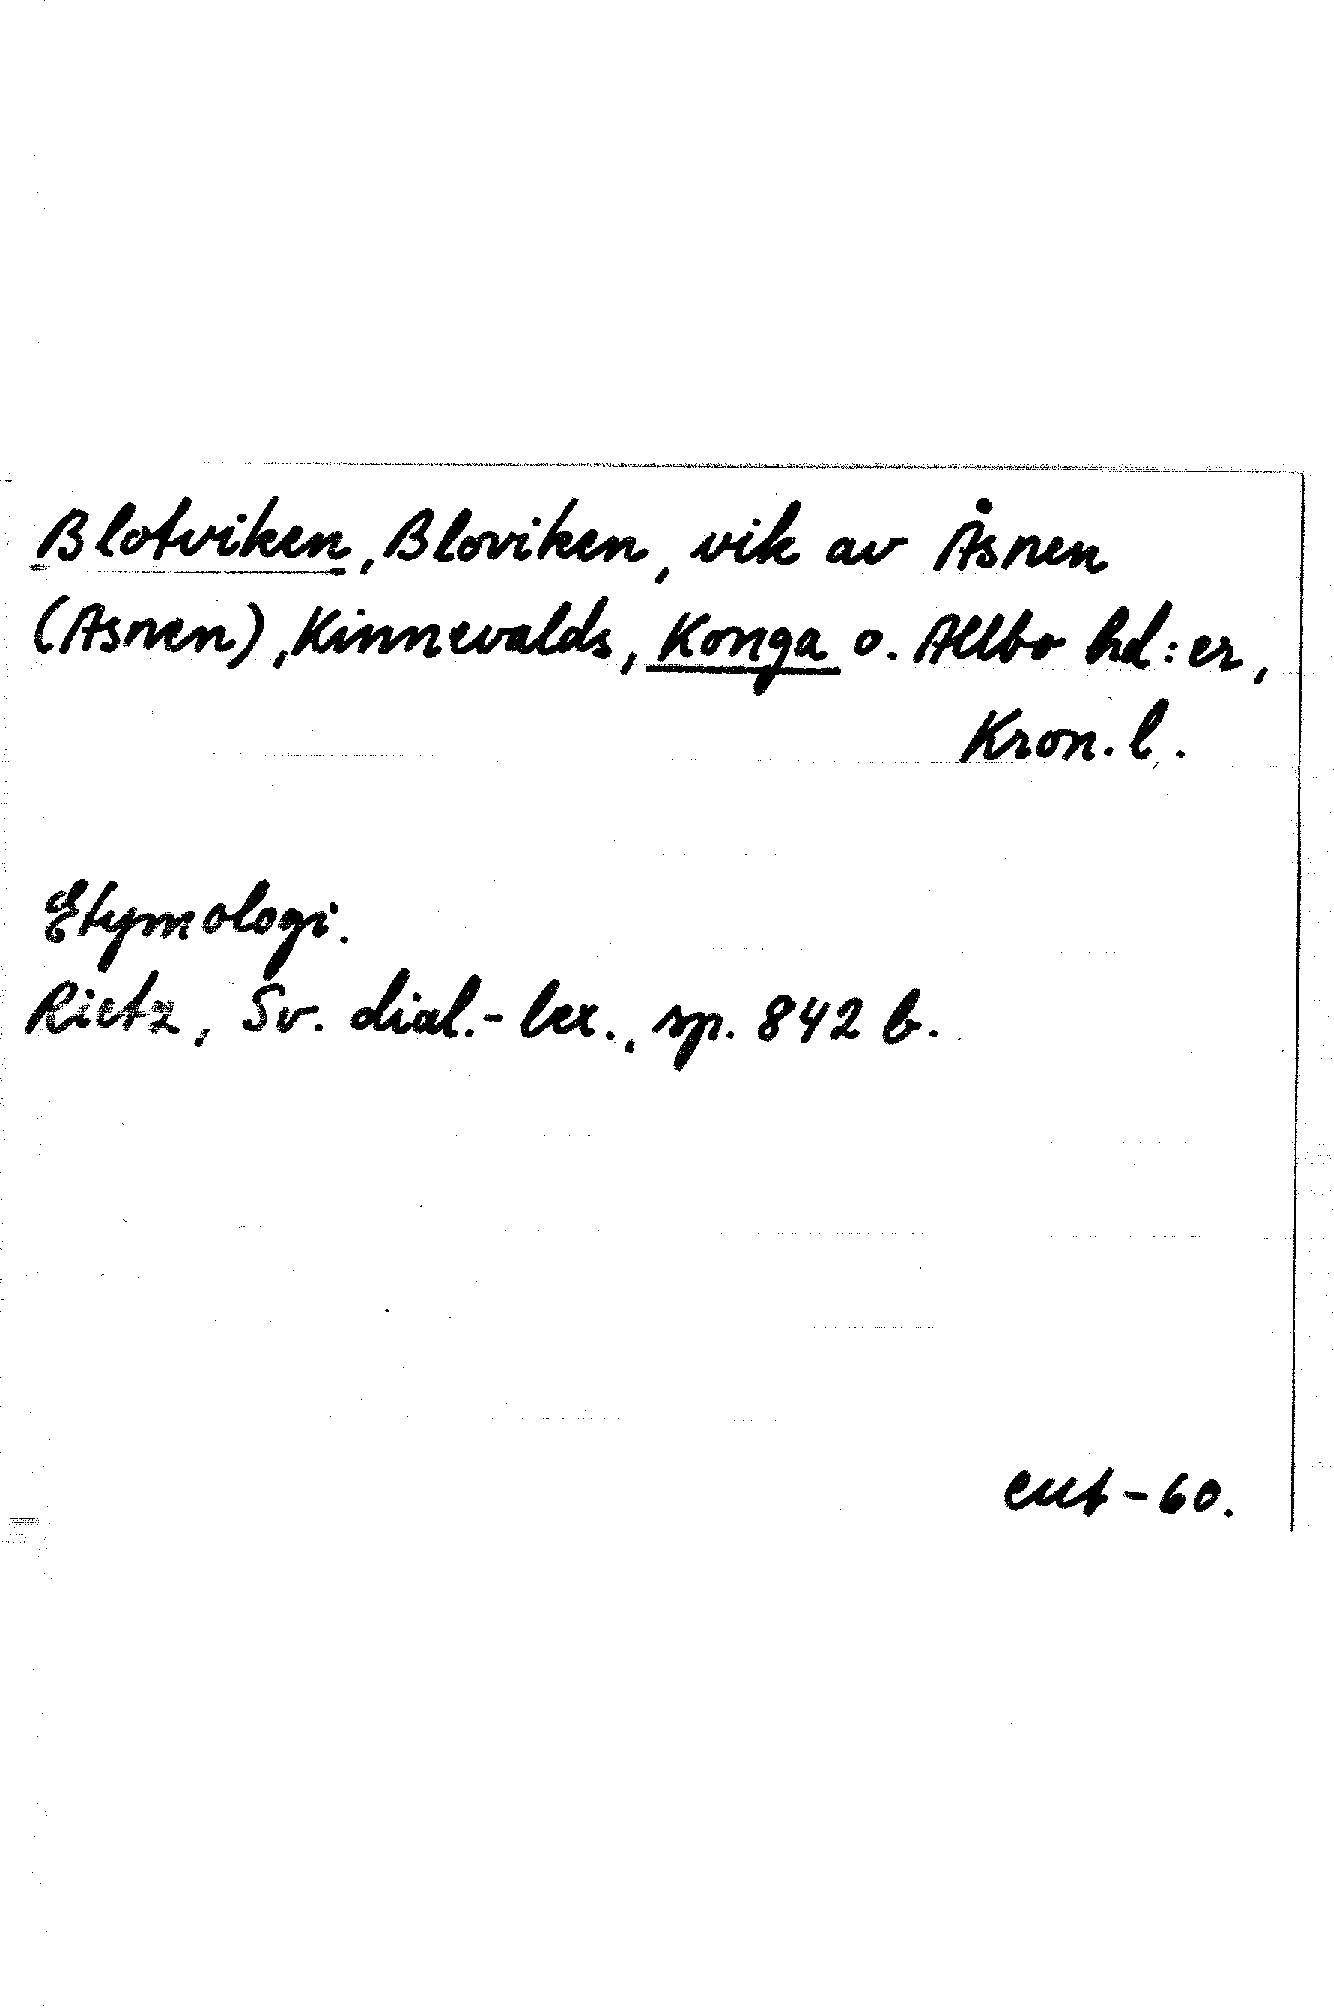 Blotviken, Bloviken, vik av Åsnen
(Asnen), Kinnevalds, Konga o. Allbo hd:er,
Kron. l.
Etymologi.
Rietz, Sv. dial.-lex., sp. 842 b.
-60.